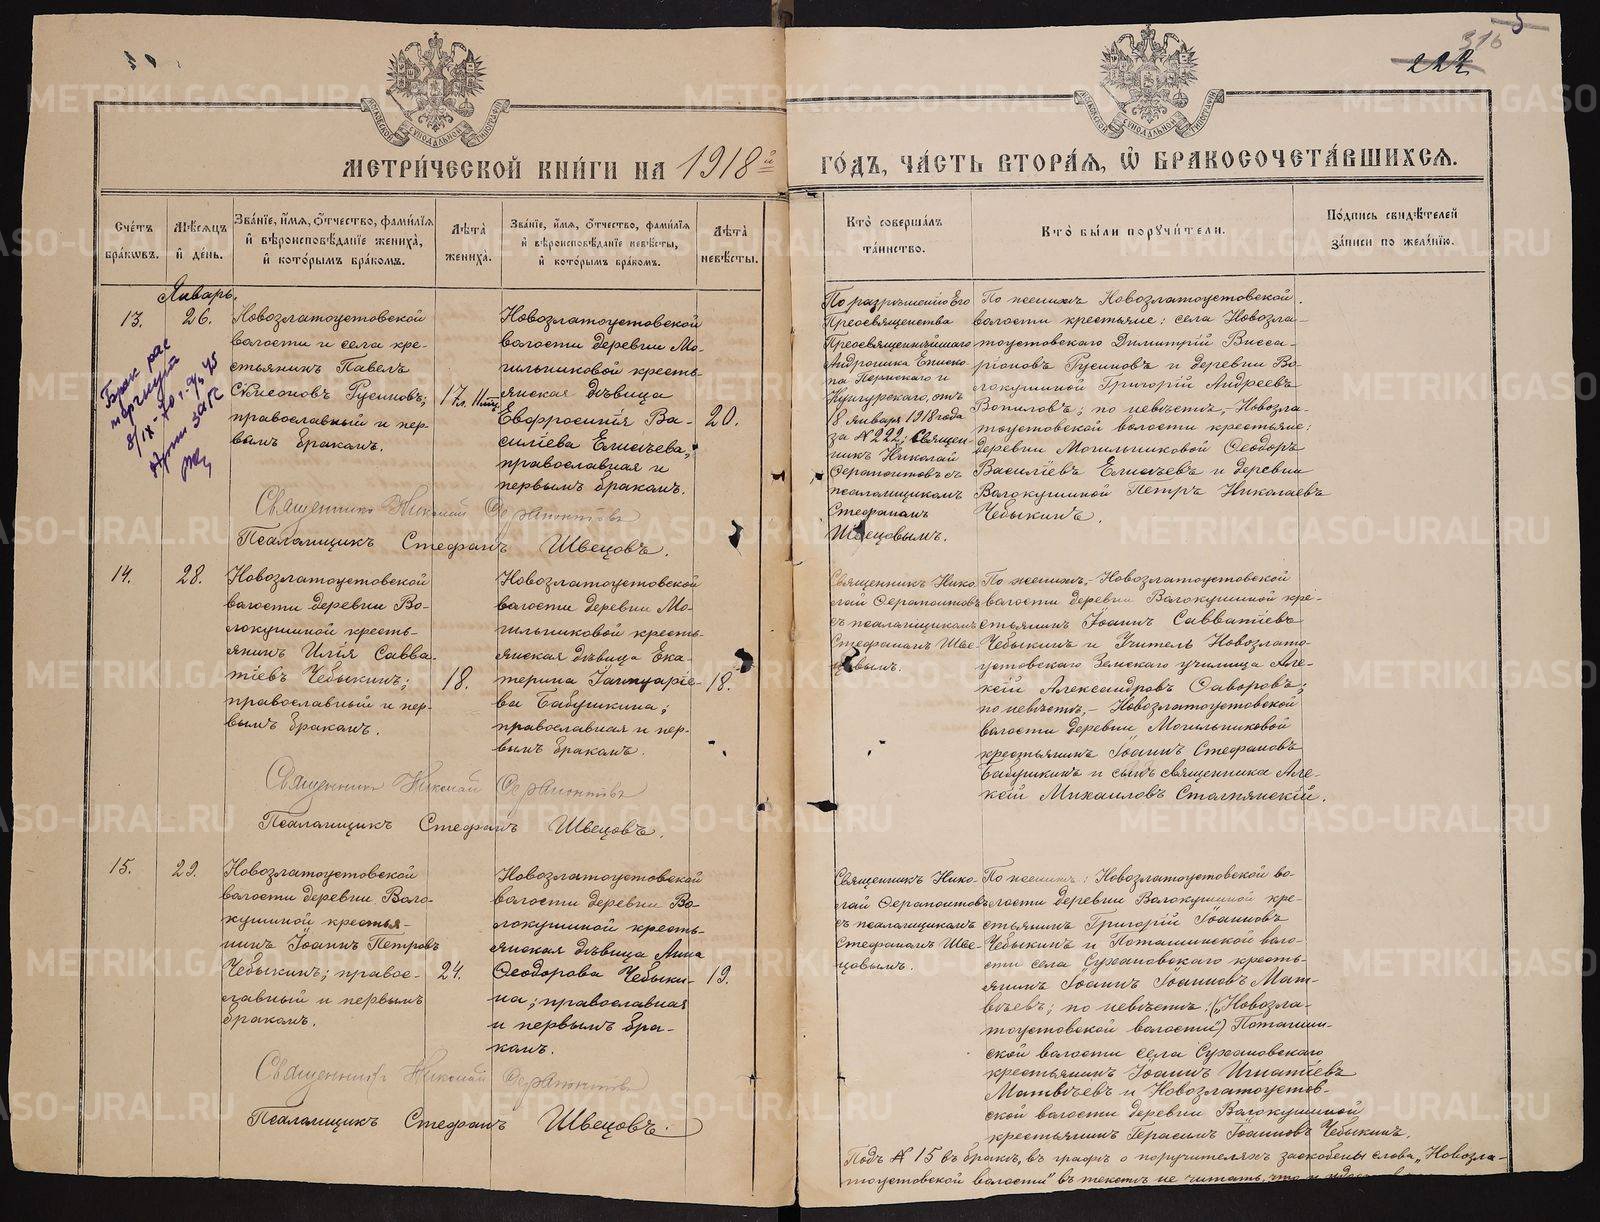 316
222
МЕТРИ́ЧЕСКОЙ КНИ́ГИ НА 1918й
ГО́ДЪ, ЧА́СТЬ ВТОРА́Я, Ѡ БРАКОСОЧЕТА́ВШИХСЯ.
Сче́тъ бра́кѡвъ.
Мѣ́сяцъ и҆ де́нь.
Зва́нїе, и҆́мя, ѻ҆́тчество, фами́лїя и҆ вѣроисповѣ́данїе жениха̀, и҆ кото́рымъ бра́комъ.
Лѣта̀ жениха̀.
Зва́нїе, и҆́мя, ѻ҆́тчество, фами́лїя и҆ вѣроисповѣ́данїе невѣ́сты, и҆ кото́рымъ бра́комъ.
Лѣта̀ невѣ́сты.
Кто̀ соверша́лъ та́инство.
Кто̀ бы́ли поручи́тели.
По́дпись свидѣ́телей за́писи по жела́нїю.
Январь.
13.
26.
Новозлатоустовской
волости и села кре-
стьянинъ Павелъ
Сѵмеоновъ Русиновъ;
православный и пер-
вымъ бракомъ.
17л.
Новозлатоустовской
волости деревни Мо-
гильниковой кресть-
янская дѣвица
Евфросинія Ва-
силіева Елисѣева,
православная и
первымъ бракомъ.
20.
По разрѣшенію Его
Преосвященства
Преосвященнѣйшаго
Андроника Еписко-
па Пермскаго и
Кунгурскаго, отъ
18 января 1918 года
за № 222; Священ-
никъ Николай
Серапионтовъ съ
псаломщикомъ
Стефаномъ
Швецовымъ.
По женихѣ Новозлатоустовской
волости крестьяне: села Новозла-
тоустовскаго Димитрій Висса-
ріоновъ Русиновъ и деревни Во-
локушиной Григорій Андреевъ
Вопиловъ; по невѣстѣ,- Новозла-
тоустовской волости крестьяне:
деревни Могильниковой Ѳеодоръ
Василіевъ Елисѣевъ и деревни
Волокушиной Петръ Николаевъ
Чебыкинъ.
Брак рас
торгнут
ЗАГС
Священникъ Николай Серапионтовъ
Псаломщикъ Стефанъ Швецовъ.
14.
28.
Новозлатоустовской
волости деревни Во-
локушиной кресть-
янинъ Илія Савва-
тіевъ Чебыкинъ;
православный и пер-
вымъ бракомъ.
18.
Новозлатоустовской
волости деревни Мо-
гильниковой кресть-
янская дѣвица Ека-
терина Іаннуаріе-
ва Бабушкина;
православная и пер-
вымъ бракомъ.
18.
Священникъ Нико-
лай Серапионтовъ
съ псаломщикомъ
Стефаномъ Шве-
цовымъ.
По женихѣ,- Новозлатоустовской
волости деревни Волокушиной кре-
стьянинъ Іоаннъ Савватіевъ
Чебыкинъ и Учитель Новозлато-
устовскаго Земскаго училища Але-
ксій Александровъ Ѳаворовъ;
по невѣстѣ,- Новозлатоустовской
волости деревни Могильниковой
крестьянинъ Іоаннъ Стефановъ
Бабушкинъ и сынъ священника Але-
ксій Михаиловъ Столпянскій.
Священникъ Николай Серапионтовъ
Псаломщикъ Стефанъ Швецовъ.
15.
29.
Новозлатоустовской
волости деревни Воло-
кушиной крестья-
нинъ Іоаннъ Петровъ
Чебыкинъ; правос-
лавный и первымъ
бракомъ.
24.
Новозлатоустовской
волости деревни Во-
локушиной кресть-
янская дѣвица Анна
Ѳеодорова Чебыки-
на; православная
и первымъ бра-
комъ.
19.
Священникъ Нико-
лай Серапионтовъ
съ псаломщикомъ
Стефаномъ Шве-
цовымъ.
По женихѣ: Новозлатоустовской во-
лости деревни Волокушиной кре-
стьянинъ Григорій Іоанновъ
Чебыкинъ и Поташинской воло-
сти села Сухановскаго кресть-
янинъ Іоаннъ Іоанновъ Мат-
вѣевъ; по невѣстѣ: („Новозла-
тоустовской волости“) Поташин-
ской волости села Сухановскаго
крестьянинъ Іоаннъ Игнатіевъ
Матвѣевъ и Новозлатоустов-
ской волости деревни Волокушиной
крестьянинъ Герасимъ Іоанновъ Чебыкинъ.
Священникъ Николай Серапионтовъ
Псаломщикъ Стефанъ Швецовъ.
Подъ № 15 въ бракѣ, въ графѣ о поручителяхъ заскобены слова „Новозла-
тоустовской волости“ въ текстѣ не читать, что и